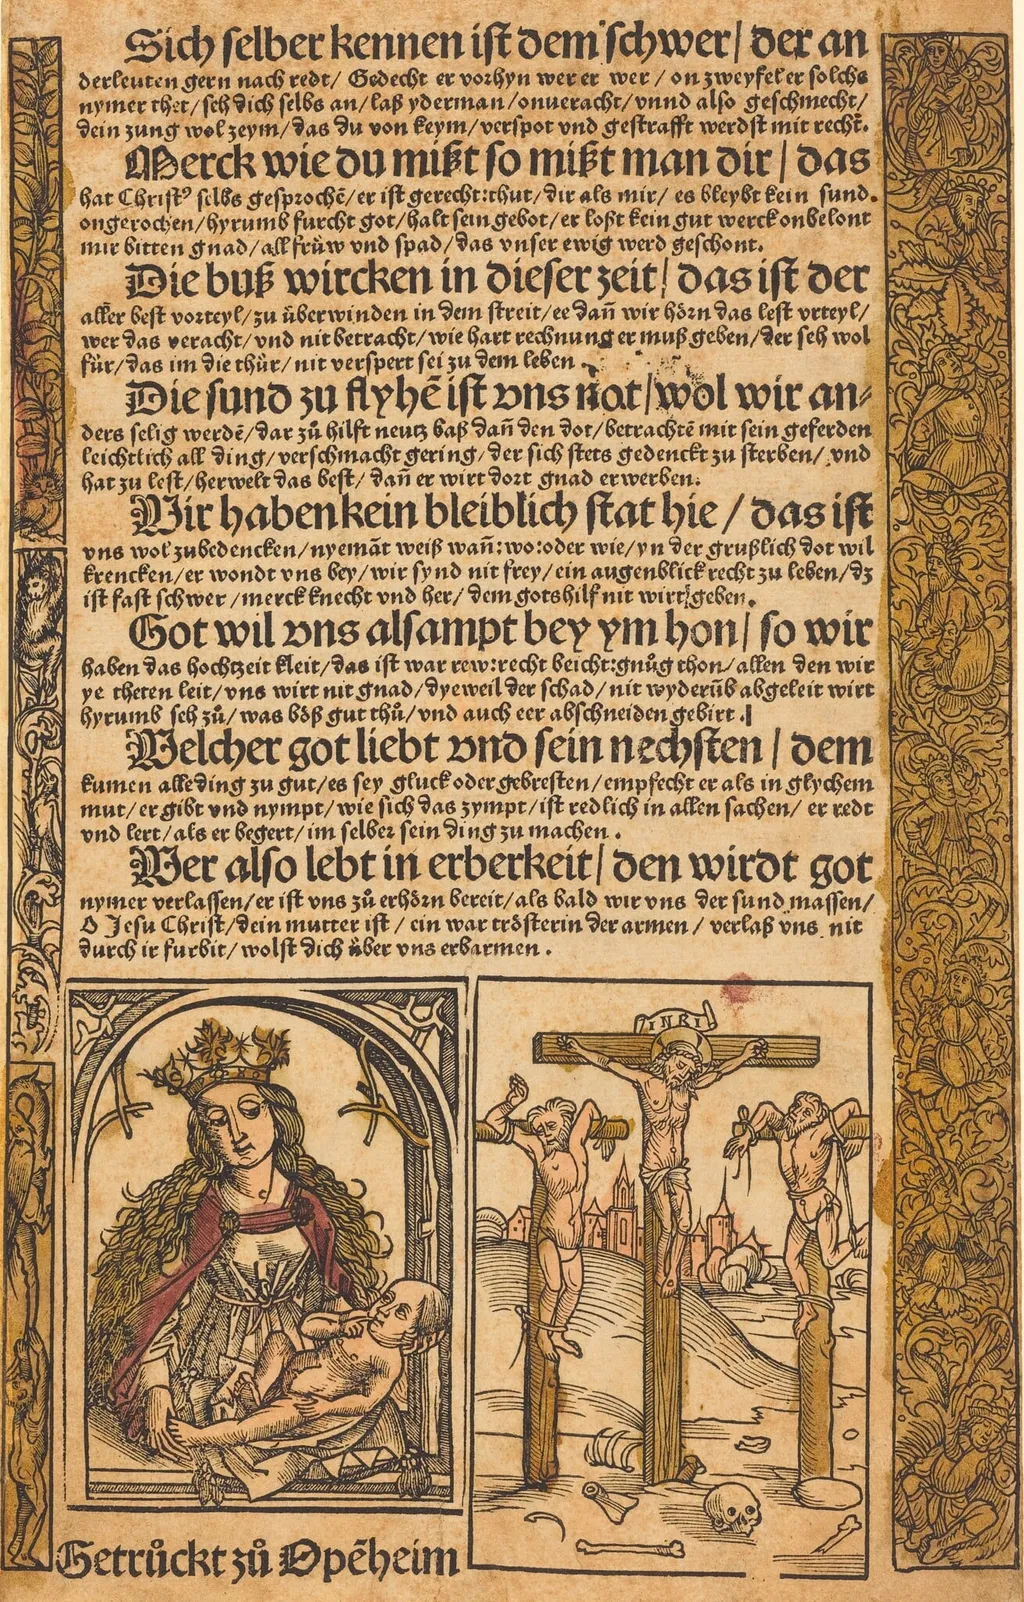 Sich selber kennen ist dem schwer / der an
derleuten gern nach redt / Gedecht er vorhyn wer er wer / on zweyfel er solchs
nymer thet / seh dich selbs an / laß yderman / onueracht / vnnd also geschmecht /
dein zung wol zeym / das du von keym / verspot vnd gestrafft werdst mit recht.
Merck wie du mißt so mißt man dir / das
hat Christꝰ selbs gesprochē / er ist gerecht : thut / dir als mir / es bleybt kein sund.
ongerochen / hyrumb furcht got / halt sein gebot / er loßt kein gut werck onbelont
mir bitten gnad / all frůw vnd spad / das vnser ewig werd geschont.
Die buß wircken in dieser zeit / das ist der
aller best vorteyl / zu überwinden in dem streit / ee dañ wir hörn das lest vrteyl /
wer das veracht / vnd nit betracht / wie hart rechnung er muß geben / der seh wol
für / das im die thür / nit verspert sei zu dem leben .
Die sund zu flyhē ist vns not / wol wir an⸗
ders selig werdē / dar zů hilft neutz baß dañ den dot / betrachtē mit sein geferden
leichtlich all ding / verschmacht gering / der sich stets gedenckt zu sterben / vnd
hat zu lest / her welt das best / dañ er wirt dort gnad erwerben.
Wir haben kein bleiblich stat hie / das ist
vns wol zubedencken / nyemāt weiß wañ : wo : oder wie / yn der grußlich dot wil
krencken / er wondt vns bey / wir synd nit frey / ein augenblick recht zu leben / dz
ist fast schwer / merck knecht vnd her / dem gots hilf nit wirt geben.
Got wil vns alsampt bey ym hon / so wir
haben das hochtzeit kleit / das ist war rew : recht beicht : gnůg thon / allen den wir
ye theten leit / vns wirt nit gnad / dyeweil der schad / nit wyderūb abgeleit wirt
hyrumb seh zů / was böß gut thů / vnd auch eer abschneiden gebirt .
Welcher got liebt vnd sein nechsten / dem
kumen alle ding zu gut / es sey gluck oder gebresten / empfecht er als in glychem
mut / er gibt vnd nympt / wie sich das zympt / ist redlich in allen sachen / er redt
vnd lert / als er begert / im selber sein ding zu machen .
Wer also lebt in erberkeit / den wirdt got
nymer verlassen / er ist vns zů erhörn bereit / als bald wir vns der sund massen /
O Jesu Christ / dein mutter ist / ein war trösterin der armen / verlaß vns nit
durch ir furbit / wolst dich über vns erbarmen .
INRI
Getrůckt zů Opēheim